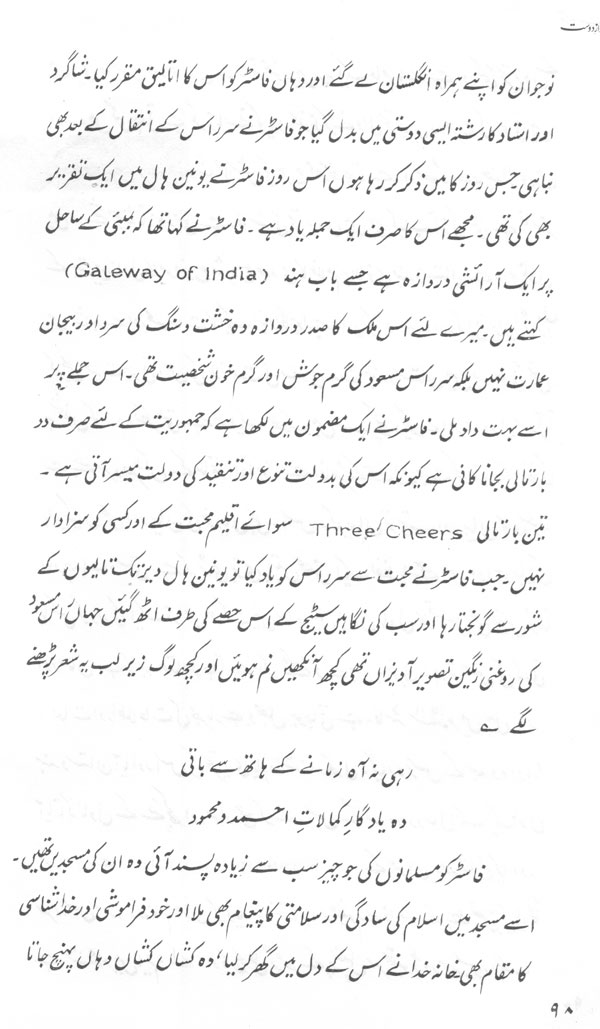 نوجوان کو اپنے ہمراہ انگلستان لے گئے اور وہاں فاسٹر کو اس کا اتالیق مقرر کیا۔ شاگرد
اور استاد کا رشتہ ایسی دوستی میں بدل گیا جو فاسٹر نے سر راس کے انتقال کے بعد بھی
نباہی جس روز کا میں ذکر کر رہا ہوں اس روز فاسٹر نے یونین ہال میں ایک تقریر
بھی کی تھی۔ مجھے اس کا صرف ایک جملہ یاد ہے۔ فاسٹر نے کہا تھا کہ بمبئی کے ساحل
پر ایک آرائشی دروازہ ہے جسے باب ہند (Galeway of India)
کہتے ہیں۔ میرے لئے اس ملک کا صدر دروازہ وہ خشت و سنگ کی سرد اور بیجان
عمارت نہیں بلکہ سر راس مسعود کی گرم جوش اور گرم خون شخصیت تھی۔ اس جملے پر
اسے بہت داد ملی۔ فاسٹر نے ایک مضمون میں لکھا ہے کہ جمہوریت کے لئے صرف دو
بار تالی بجانا کافی ہے کیونکہ اس کی بدولت تنوع اور تنقید کی دولت میسر آتی ہے۔
تین بار تالی Three Cheers سوائے اقلیم محبت کے اور کسی کو سزاوار
نہیں۔ جب فاسٹر نے محبت سے سر راس کو یاد کیا تو یونین ہال دیر تک تالیوں کے
شور سے گونجتا رہا اور سب کی نگاہیں سٹیج کے اس حصے کی طرف اٹھ گئیں جہاں راس مسعود
کی روغنی رنگین تصویر آویزاں تھی کچھ آنکھیں نم ہوئیں اور کچھ لوگ زیر لب یہ شعر پڑھنے
لگے ؎
رہی نہ آہ زمانے کے ہاتھ سے باقی
وہ یادگارِ کمالاتِ احمد و محمود
فاسٹر کو مسلمانوں کی جو چیز سب سے زیادہ پسند آئی وہ ان کی مسجدیں تھیں۔
اسے مسجد میں اسلام کی سادگی اور سلامتی کا پیغام بھی ملا اور خود فراموشی اور خدا شناسی
کا مقام بھی خانہ خدا نے اس کے دل میں گھر کر لیا، وہ کشاں کشاں وہاں پہنچ جاتا
۹۸